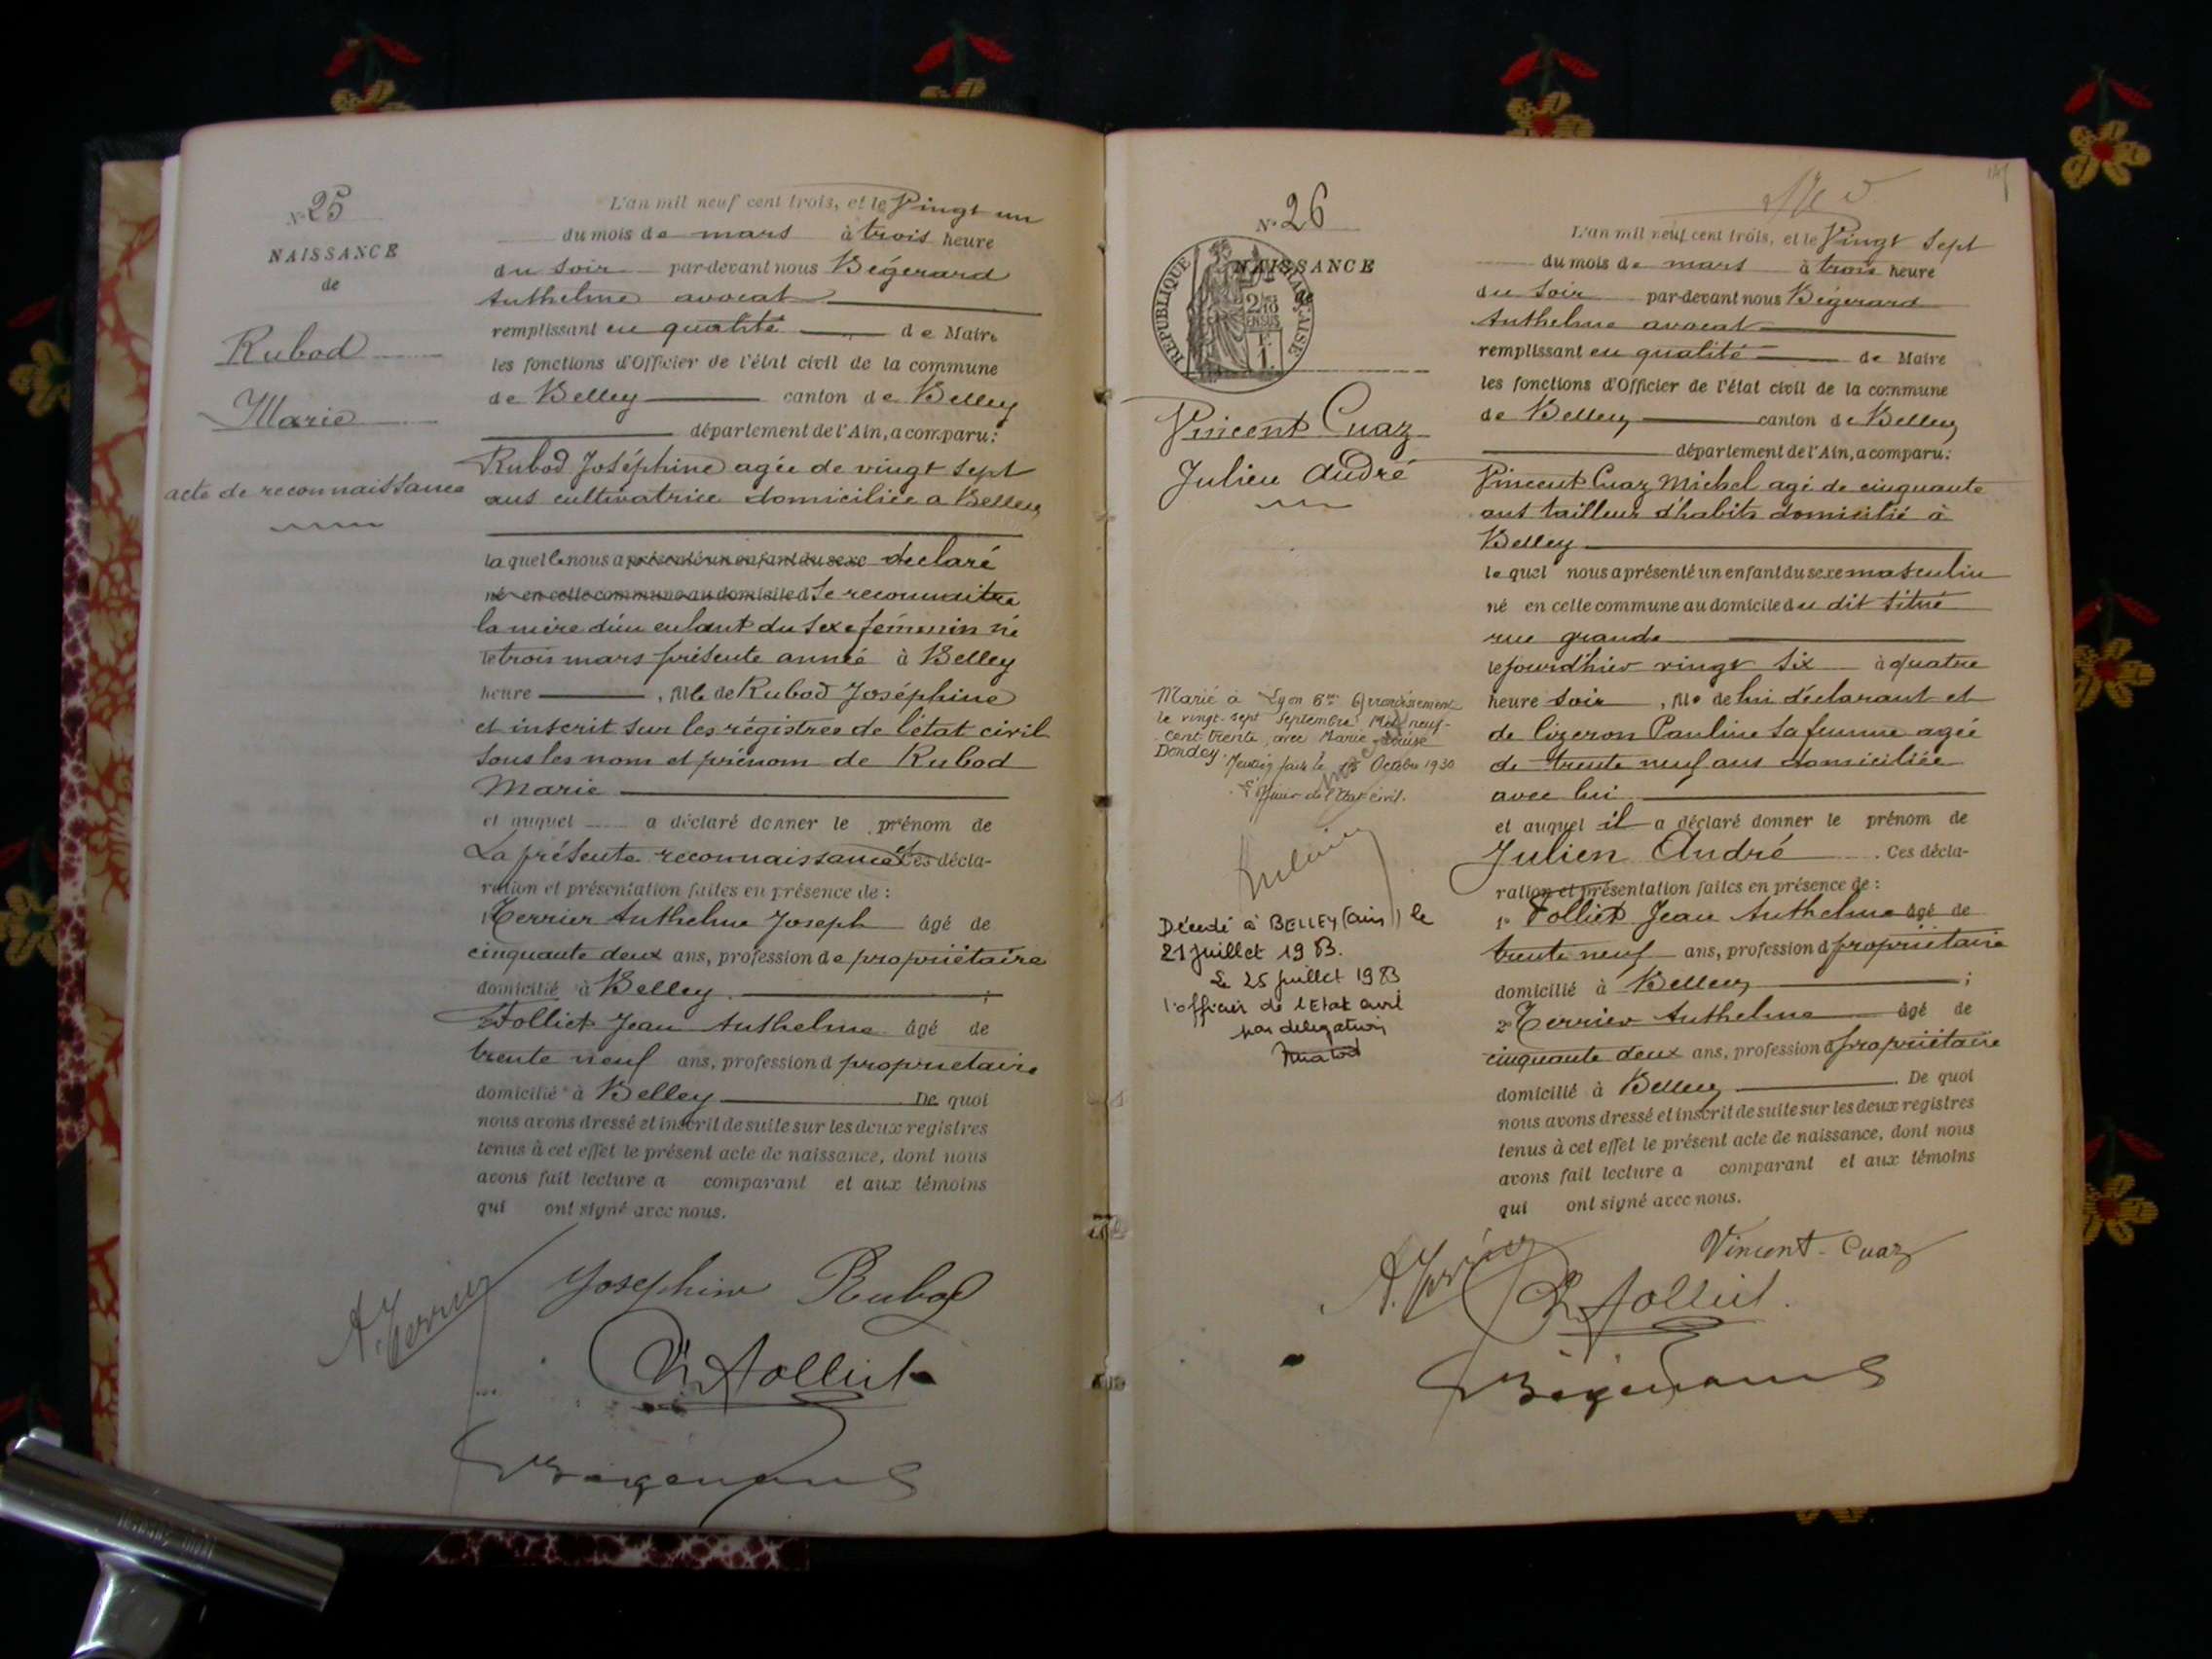 N° 25
NAISSANCE
de
Rubod
Marie
acte de reconnaissance
L'an mil neuf cent trois, et le Vingt un
du mois de mars à trois heure
du soir par-devant nous Bégerard
Anthelme avocat
remplissant en qualité de Maire
les fonctions d'Officier de l'état civil de la commune
de Belley canton de Belley
département de l'Ain, a comparu:
Rubod Joséphine agée de vingt sept
ans cultivatrice domiciliée a Belley
laquelle nous a présenté un enfant du sexe declaré
né en cette commune au domicile d se reconnaitre
la mère d'un enfant du sexe féminin né
le trois mars présente année à Belley
heure , fille de Rubod Joséphine
et inscrit sur les régistres de l'état civil
sous les nom et prénom de Rubod
Marie
et auquel a déclaré donner le prénom de
La présente reconnaissance et Ces décla-
ration et présentation faites en présence de :
1° Terrier Anthelme Joseph âgé de
cinquante deux ans, profession de propriétaire
domicilié à Belley ;
2° Folliet Jean Anthelme âgé de
trente neuf ans, profession d propriétaire
domicilié à Belley De quoi
nous avons dressé et inscrit de suite sur les deux registres
tenus à cet effet le présent acte de naissance, dont nous
avons fait lecture a comparant et aux témoins
qui ont signé avec nous.
A. Terrier Josephine Rubod
Folliet
Bégerard
N° 26
NAISSANCE
de
RÉPUBLIQUE FRANÇAISE
2/10 EN SUS
1 F.
Vincent Cuaz
Julien André
Marié à Lyon 6me Arrondissement
le vingt-sept Septembre Mil neuf-
cent trente, avec Marie-Louise
Dondey. Mention faite le 15 Octobre 1930
L'Officier de l'Etat civil.
Décédé à BELLEY (Ain) le
21 Juillet 1983.
Le 25 Juillet 1983
l'officier de l'Etat civil
par délégation
L'an mil neuf cent trois, et le Vingt sept
du mois de mars à trois heure
du soir par-devant nous Bégerard
Anthelme avocat
remplissant en qualité de Maire
les fonctions d'Officier de l'état civil de la commune
de Belley canton de Belley
département de l'Ain, a comparu:
Vincent Cuaz Michel agé de cinquante
ans tailleur d'habits domicilié à
Belley
lequel nous a présenté un enfant du sexe masculin
né en cette commune au domicile du dit situé
rue grande
le jourd'hier vingt six à quatre
heure soir , fils de lui déclarant et
de Lizeron Pauline sa femme agée
de trente neuf ans domiciliée
avec lui
et auquel il a déclaré donner le prénom de
Julien André . Ces décla-
ration et présentation faites en présence de :
1° Folliet Jean Anthelme âgé de
trente neuf ans, profession d propriétaire
domicilié à Belley ;
2° Terrier Anthelme âgé de
cinquante deux ans, profession d propriétaire
domicilié à Belley . De quoi
nous avons dressé et inscrit de suite sur les deux registres
tenus à cet effet le présent acte de naissance, dont nous
avons fait lecture a comparant et aux témoins
qui ont signé avec nous.
Vincent-Cuaz
A. Terrier Folliet
Bégerard